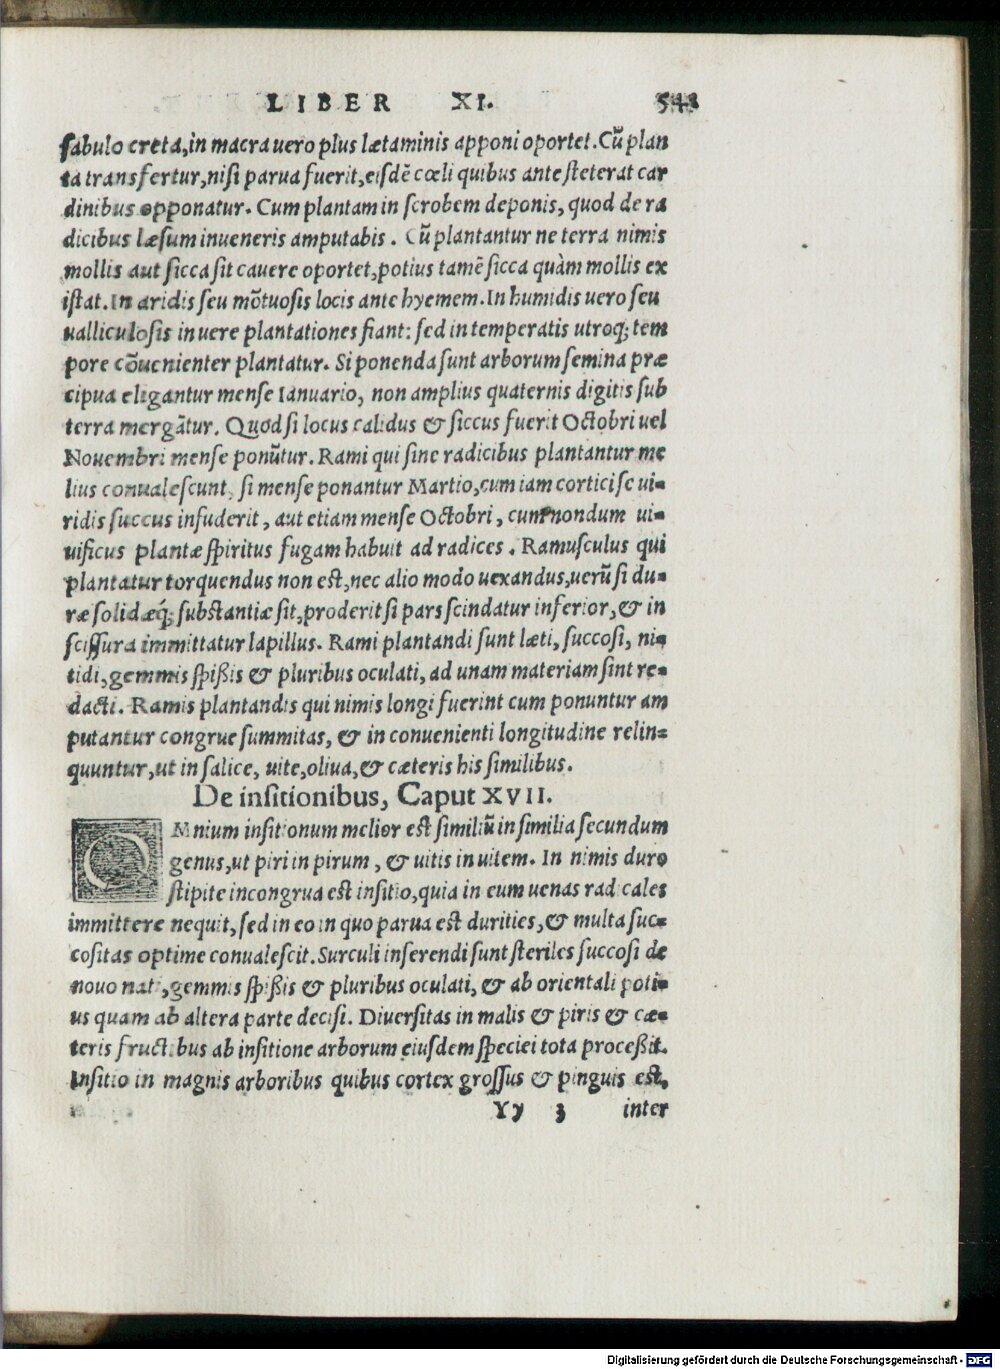 LIBER XI. 543
sabulo creta, in macra uero plus lætaminis apponi oportet. Cũ plan
ta transfertur, nisi parua fuerit, eisdẽ cœli quibus ante steterat car
dinibus opponatur. Cum plantam in scrobem deponis, quod de ra
dicibus læsum inueneris amputabis. Cũ plantantur ne terra nimis
mollis aut sicca sit cauere oportet, potius tamẽ sicca quàm mollis ex
istat. In aridis seu mõtuosis locis ante hyemem. In humidis uero seu
ualliculosis in uere plantationes fiant: sed in temperatis utroq; tem
pore cõuenienter plantatur. Si ponenda sunt arborum semina præ
cipua eligantur mense Ianuario, non amplius quaternis digitis sub
terra mergãtur. Quod si locus calidus & siccus fuerit Octobri uel
Nouembri mense ponũtur. Rami qui sine radicibus plantantur me
lius conualescunt, si mense ponantur Martio, cum iam cortici se ui=
ridis succus infuderit, aut etiam mense Octobri, cum nondum ui=
uificus plantæ spiritus fugam habuit ad radices. Ramusculus qui
plantatur torquendus non est, nec alio modo uexandus, uerũ si du=
ræ solidæq́; substantiæ sit, proderit si pars scindatur inferior, & in
scissura immittatur lapillus. Rami plantandi sunt læti, succosi, ni=
tidi, gemmis spißis & pluribus oculati, ad unam materiam sint re=
dacti. Ramis plantandis qui nimis longi fuerint cum ponuntur am
putantur congrue summitas, & in conuenienti longitudine relin=
quuntur, ut in salice, uite, oliua, & cæteris his similibus.
De insitionibus, Caput XVII.
OMnium insitionum melior est similiũ in similia secundum
genus, ut piri in pirum, & uitis in uitem. In nimis duro
stipite incongrua est insitio, quia in eum uenas radicales
immittere nequit, sed in eo in quo parua est durities, & multa suc=
cositas optime conualescit. Surculi inserendi sunt steriles succosi de
nouo nati, gemmis spißis & pluribus oculati, & ab orientali poti=
us quam ab altera parte decisi. Diuersitas in malis & piris & cæ=
teris fructibus ab insitione arborum eiusdem speciei tota proceßit.
Insitio in magnis arboribus quibus cortex grossus & pinguis est,
Yy 3 inter
Digitalisierung gefördert durch die Deutsche Forschungsgemeinschaft - DFG